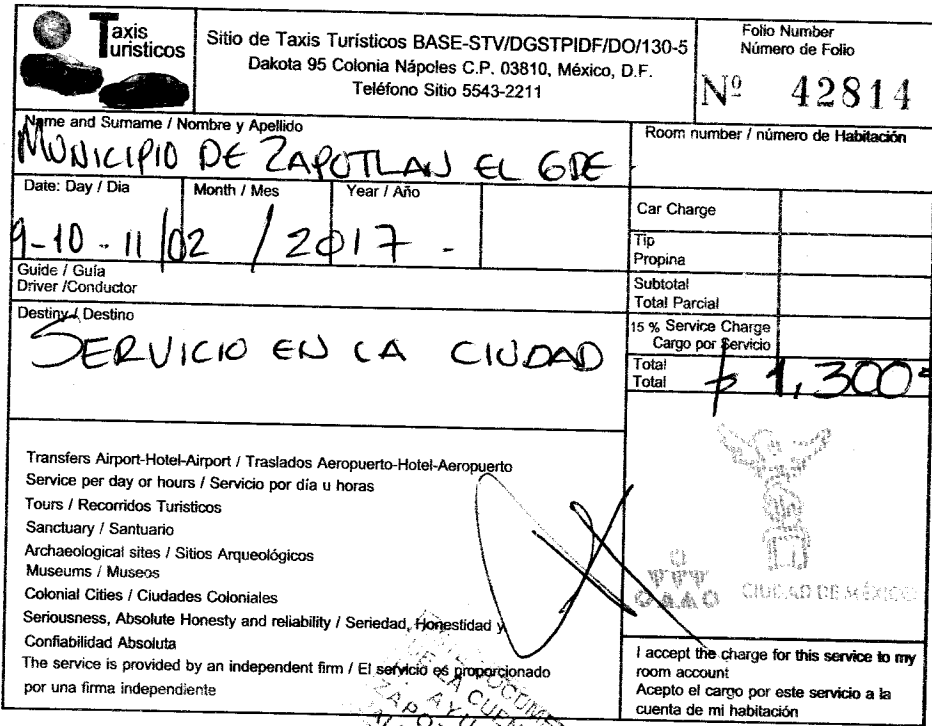 Taxis
Turisticos
Sitio de Taxis Turísticos BASE-STV/DGSTPIDF/DO/130-5
Dakota 95 Colonia Nápoles C.P. 03810, México, D.F.
Teléfono Sitio 5543-2211
Folio Number
Número de Folio
Nº 42814
Name and Surname / Nombre y Apellido
MUNICIPIO DE ZAPOTLAN EL GDE
Room number / número de Habitación
Date: Day / Dia
Month / Mes
Year / Año
9-10-11/02 / 2017 -
Car Charge
Tip
Propina
Guide / Guía
Driver /Conductor
Subtotal
Total Parcial
Destiny / Destino
SERVICIO EN LA CIUDAD
15 % Service Charge
Cargo por Servicio
Total
Total
$ 1,300=
Transfers Airport-Hotel-Airport / Traslados Aeropuerto-Hotel-Aeropuerto
Service per day or hours / Servicio por día u horas
Tours / Recorridos Turisticos
Sanctuary / Santuario
Archaeological sites / Sitios Arqueológicos
Museums / Museos
Colonial Cities / Ciudades Coloniales
Seriousness, Absolute Honesty and reliability / Seriedad, Honestidad y
Confiabilidad Absoluta
The service is provided by an independent firm / El servicio es proporcionado
por una firma independiente
CIUDAD DE MÉXICO
I accept the charge for this service to my
room account
Acepto el cargo por este servicio a la
cuenta de mi habitación
DE LA CUEN